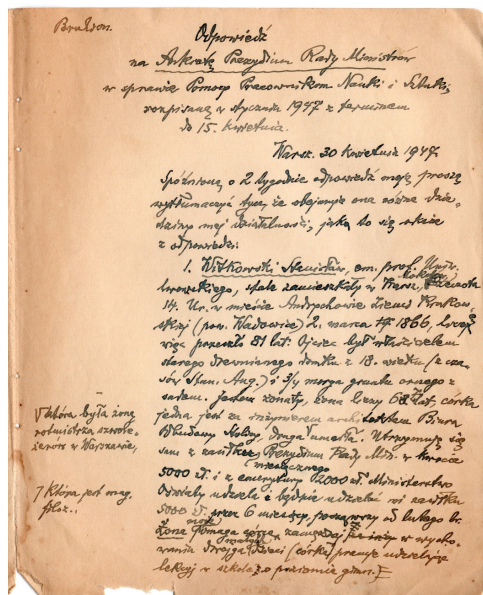 Brulion.
Odpowiedź
na Ankietę Prezydium Rady Ministrów
w sprawie Pomocy Pracownikom Nauki i Sztuki,
rozpisaną w styczniu 1947 z terminem
do 15. kwietnia.
Warsz. 30 kwietnia 1947.
Spóźnioną o 2 tygodnie odpowiedź moją proszę
wytłumaczyć tym, że obejmuje ona różne dzie-
dziny mej działalności, jak to się okaże
z odpowiedzi:
1. Witkowski Stanisław, em. prof. Uniw.
lwowskiego, stale zamieszkały w Warsz.,
14. Ur. w mieście Andrychowie Ziemi Krakow-
skiej (pow. Wadowice) 2. marca 1866, liczę
więc przeszło 81 lat. Ojciec był właścicielem
starego drewnianego domku z 18. wieku (z cza-
sów Stan. Aug.) i 3/4 morga gruntu ornego z
sadem. Jestem żonaty, żona liczy 68 lat, córka
jedna jest za inżynierem architektem Biura
Odbudowy Stolicy, druga umarła. Utrzymuję się
sam z zasiłków Prezydium Rady Min. w kwocie
miesięcznego
5000 zł. i z emerytury 2000 zł. Ministerstwo
Oświaty udziela i będzie udzielać mi zasiłku
5000 zł. przez 6 miesięcy, począwszy od lutego br.
Żona pomaga córce zamężnej w wycho-
waniu dzieci (córka) pracuje udzielając
lekcyj w szkole o poziomie gimn.
która była żoną
rotmistrza szwole-
żerów w Warszawie,
która jest mag.
filoz.